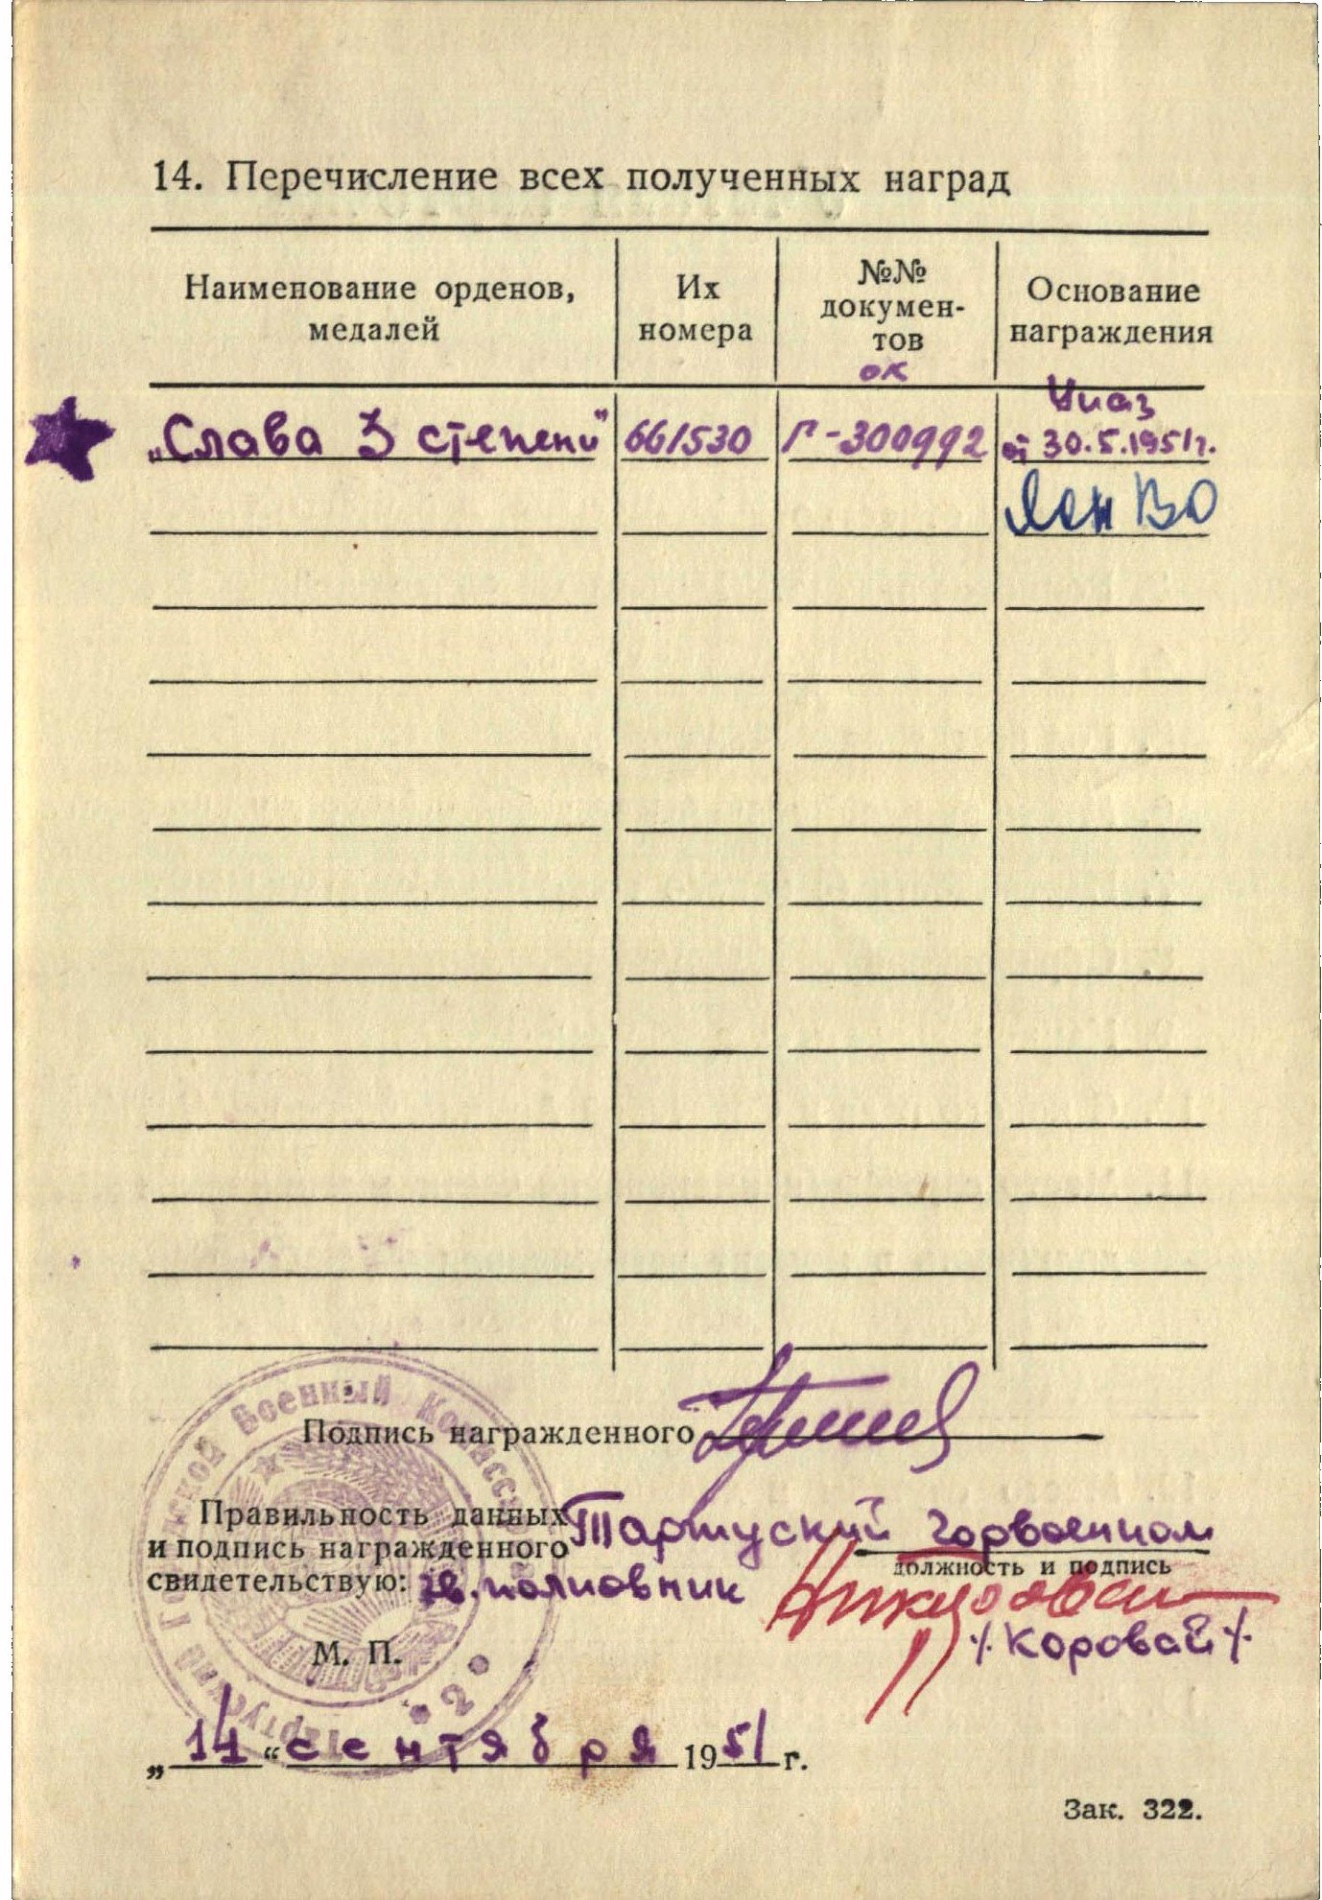 14. Перечисление всех полученных наград
Наименование орденов,
медалей
Их
номера
№№
докумен-
тов
ок
Основание
награждения
„Слава 3 степени" 661530 Г-300992 Указ
от 30.5.1951г.
ВО
Подпись награжденного
Правильность данных
и подпись награжденного
свидетельствую:
Тартуский горвоенком
должность и подпись
гв. полковник
/Коровай/
М. П.
Тартуский Городской Военный Комиссариат
* 2 *
„14“ сентября 1951 г.
Зак. 322.